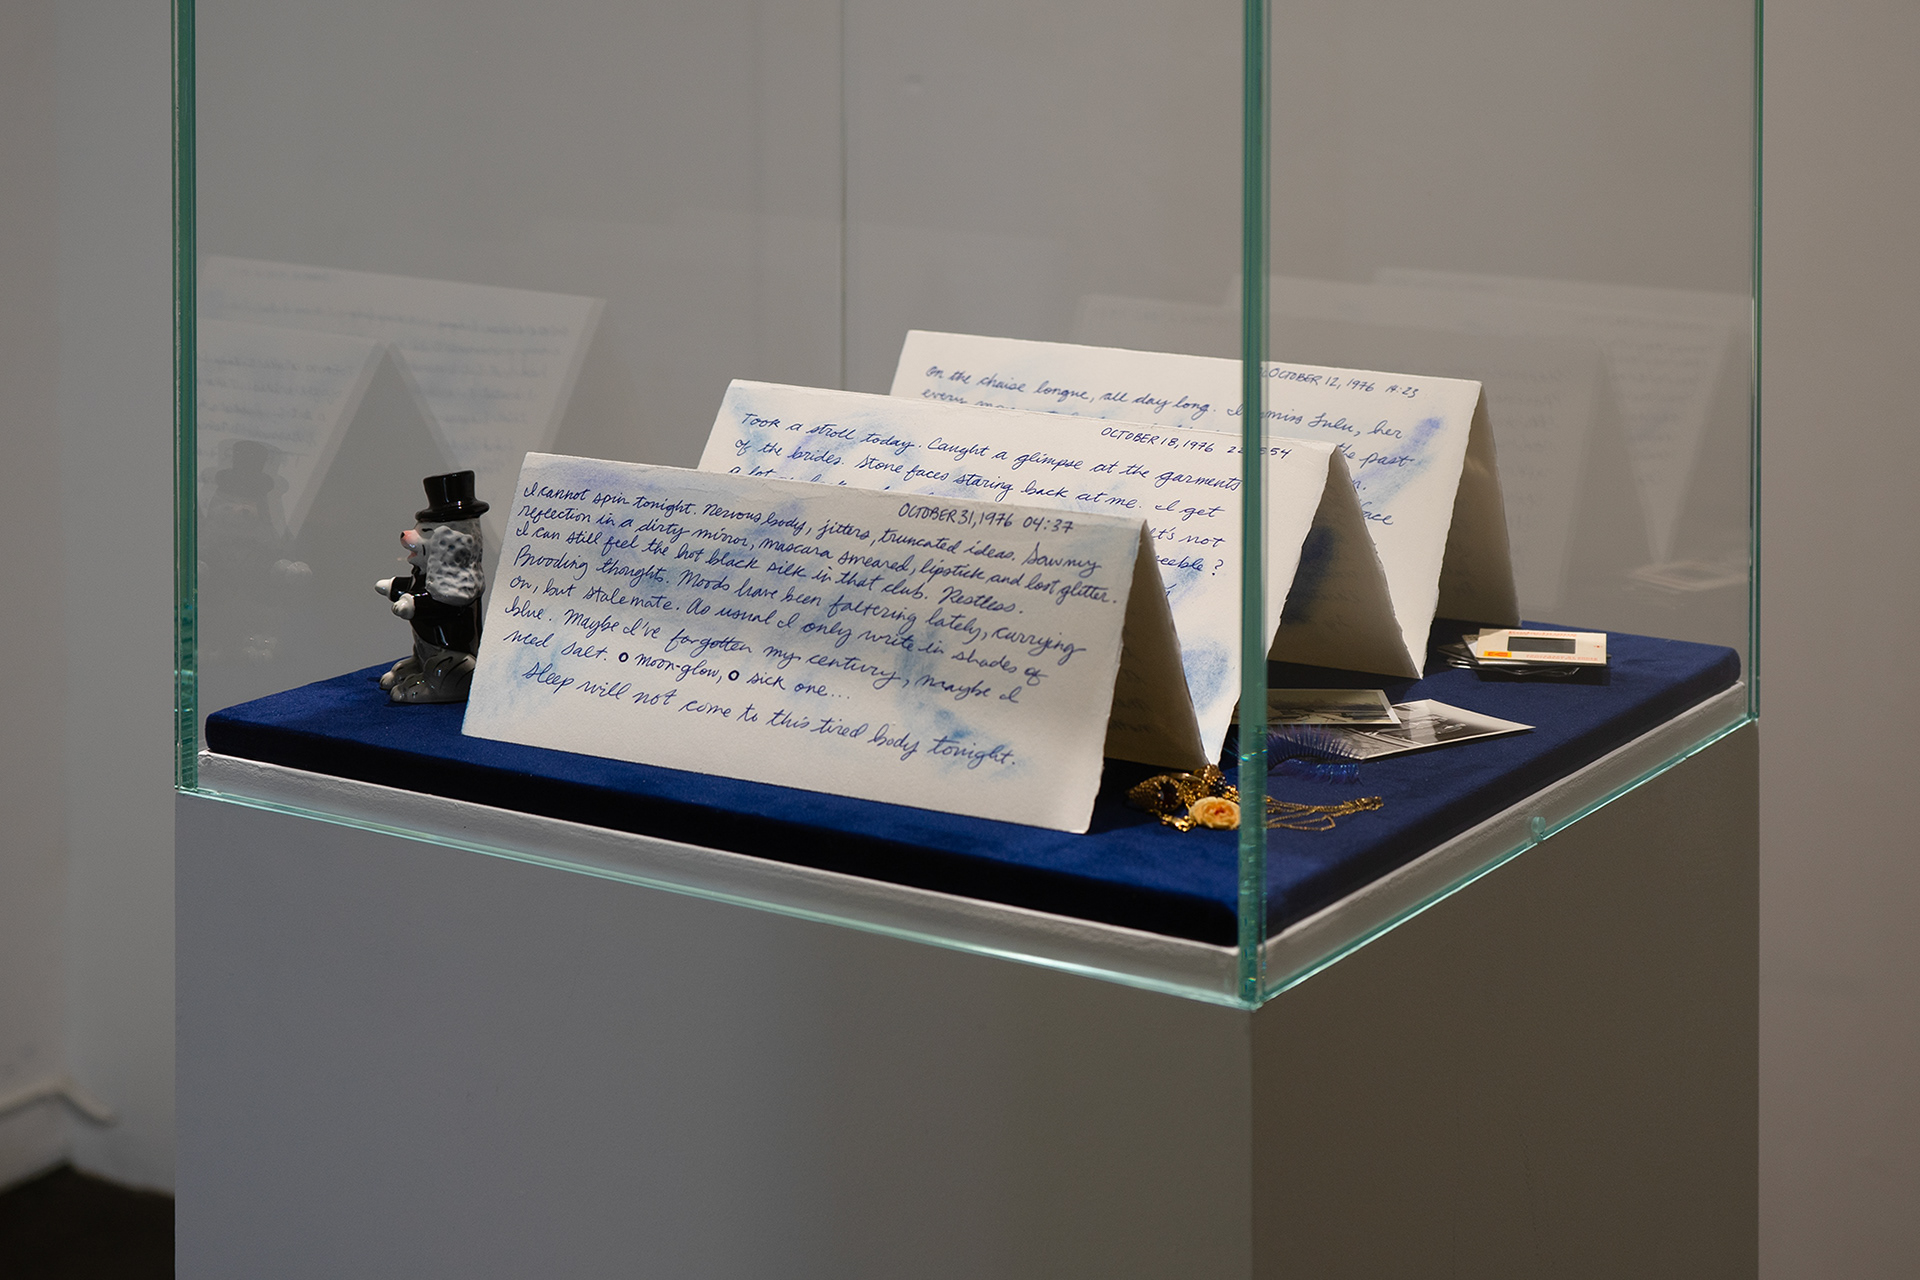 OCTOBER 12, 1976 14:23
On the chaise longue, all day long. I miss Lulu, her
every
the past
face
OCTOBER 18, 1976 22:54
Took a stroll today. Caught a glimpse at the garments
of the brides. Stone faces staring back at me. I get
a lot
It's not
OCTOBER 31, 1976 04:37
I cannot spin tonight. Nervous body, jitters, truncated ideas. Saw my
reflection in a dirty mirror, mascara smeared, lipstick and lost glitter.
I can still feel the hot black silk in that club. Restless.
Brooding thoughts. Moods have been faltering lately, carrying
on, but stalemate. As usual I only write in shades of
blue. Maybe I've forgotten my century, maybe I
need salt. O moon-glow, O sick one...
Sleep will not come to this tired body tonight.